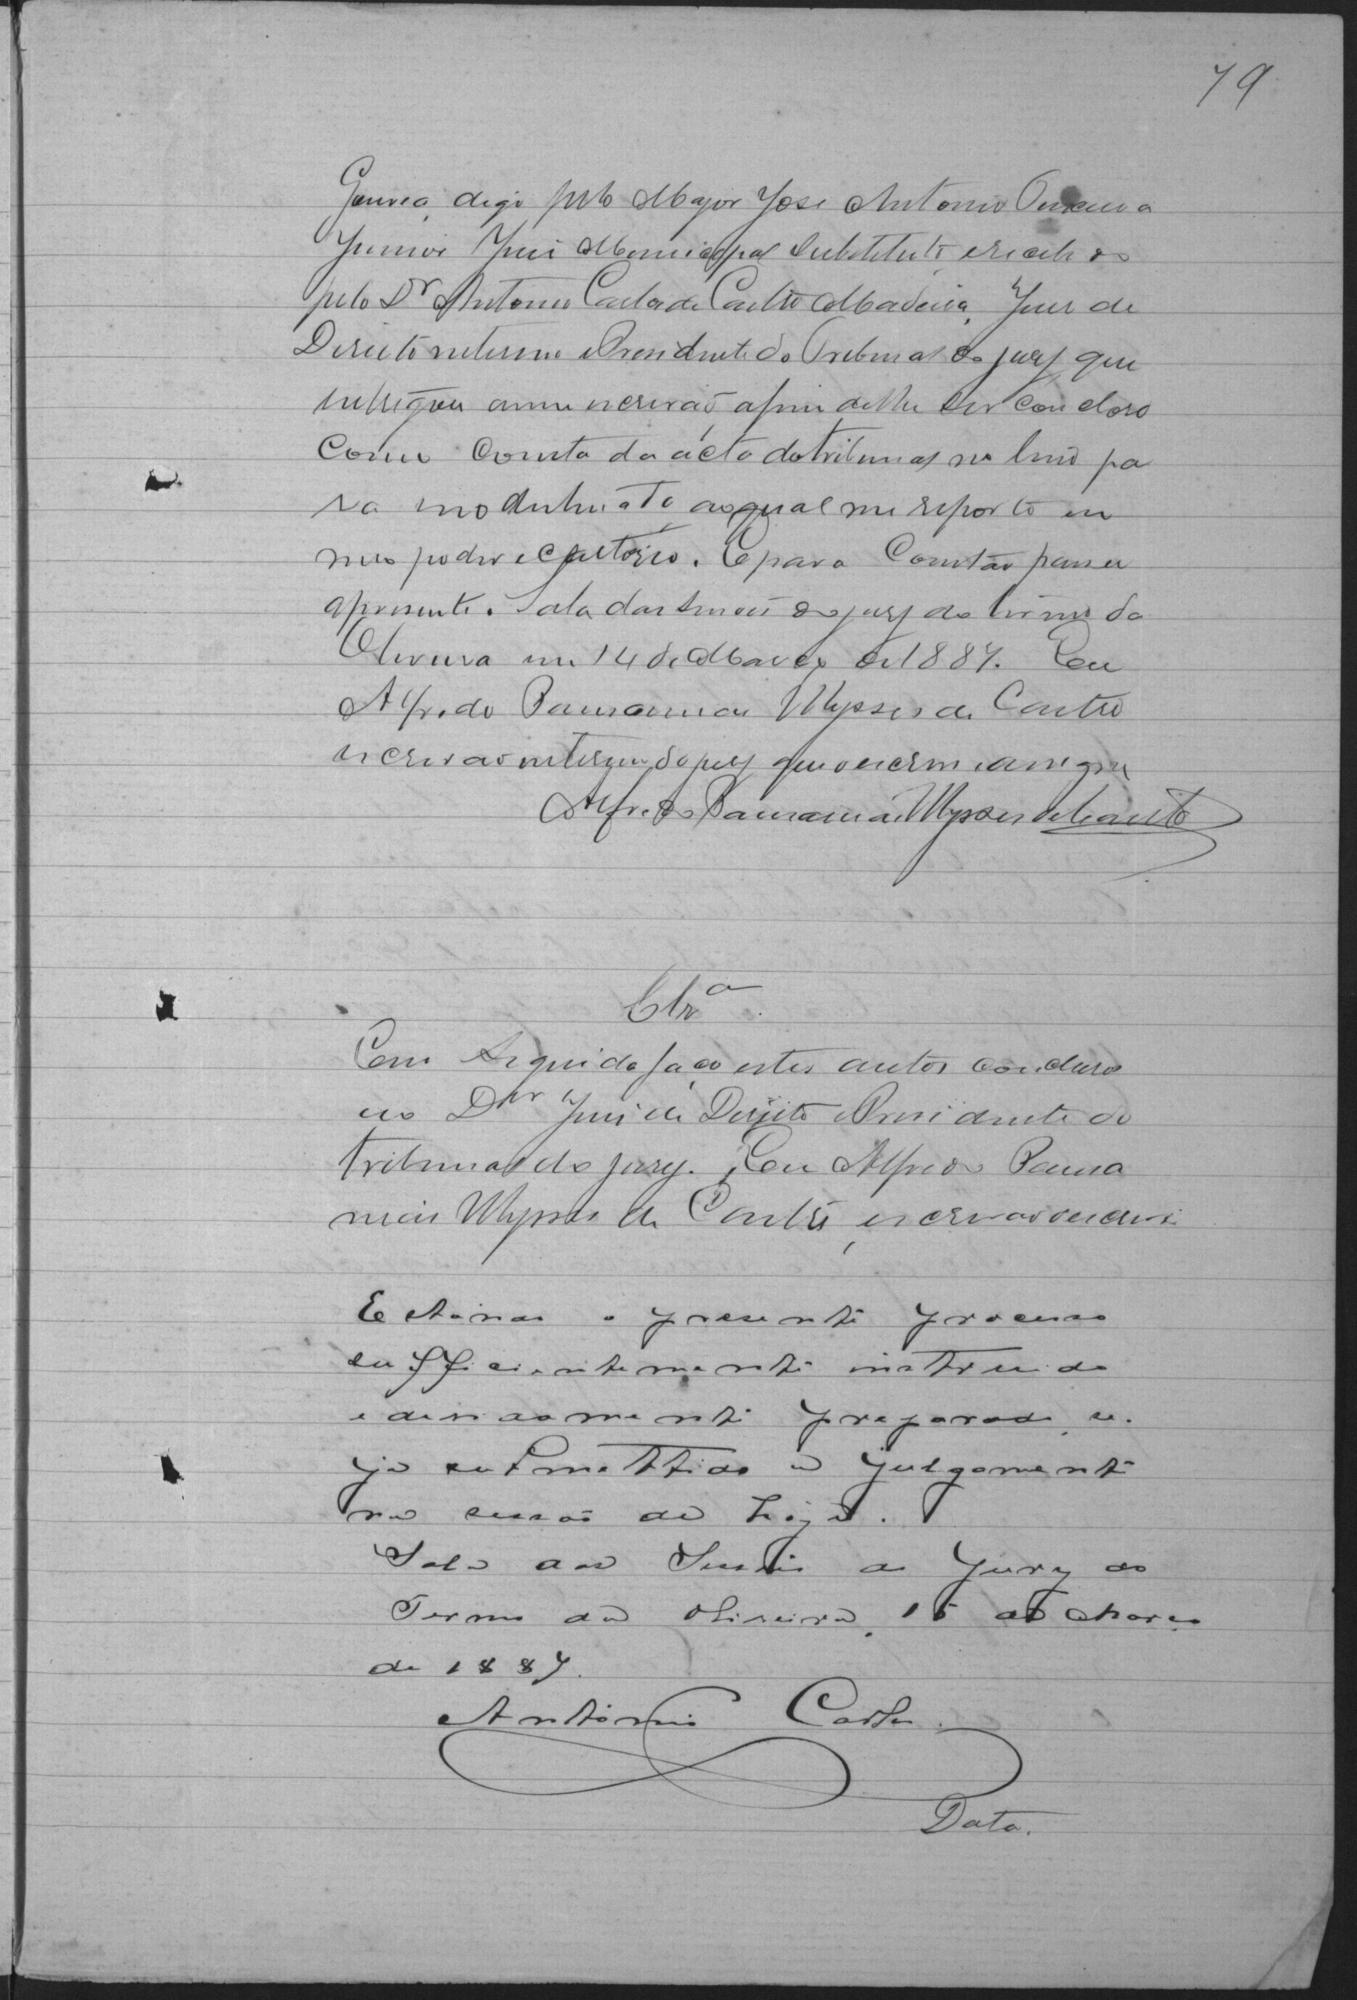 79
Gouvea, digo pelo Major José Antonio
Junior Juiz Municipal Substituto, e recebido
pelo Dr Antonio Carlos de Castro Madeira, Juiz de
Direito interino e Presidente do Tribunal do jury que
entregou a mim escrivão, afim de lhe ser concluso
como consta da acta do tribunal no livro pa
ra ao qual me reporto em
meo poder e Cartorio. E para Constar passei
a presente. Sala das sessões do jury do termo da
Oliveira em 14 de Março de 1887. Eu
Alfredo Ulysses de Castro
escrivão interino do jury que o escrevi e assignei
Alfredo Ulysses de Castro
Clzª
Em seguida faço estes autos conclusos
ao Dr Juiz de Direito e Presidente do
tribunal do jury. Eu Alfredo
Ulysses de Castro, escrivão o escrevi
o presente processo
sufficientemente instruido
e devidamente preparado, se-
ja submettido a julgamento
na sessão de hoje.
Sala das Sessões do Jury do
Termo da Oliveira, 15 de Março
de 1887.
Antonio Carlos
Data.